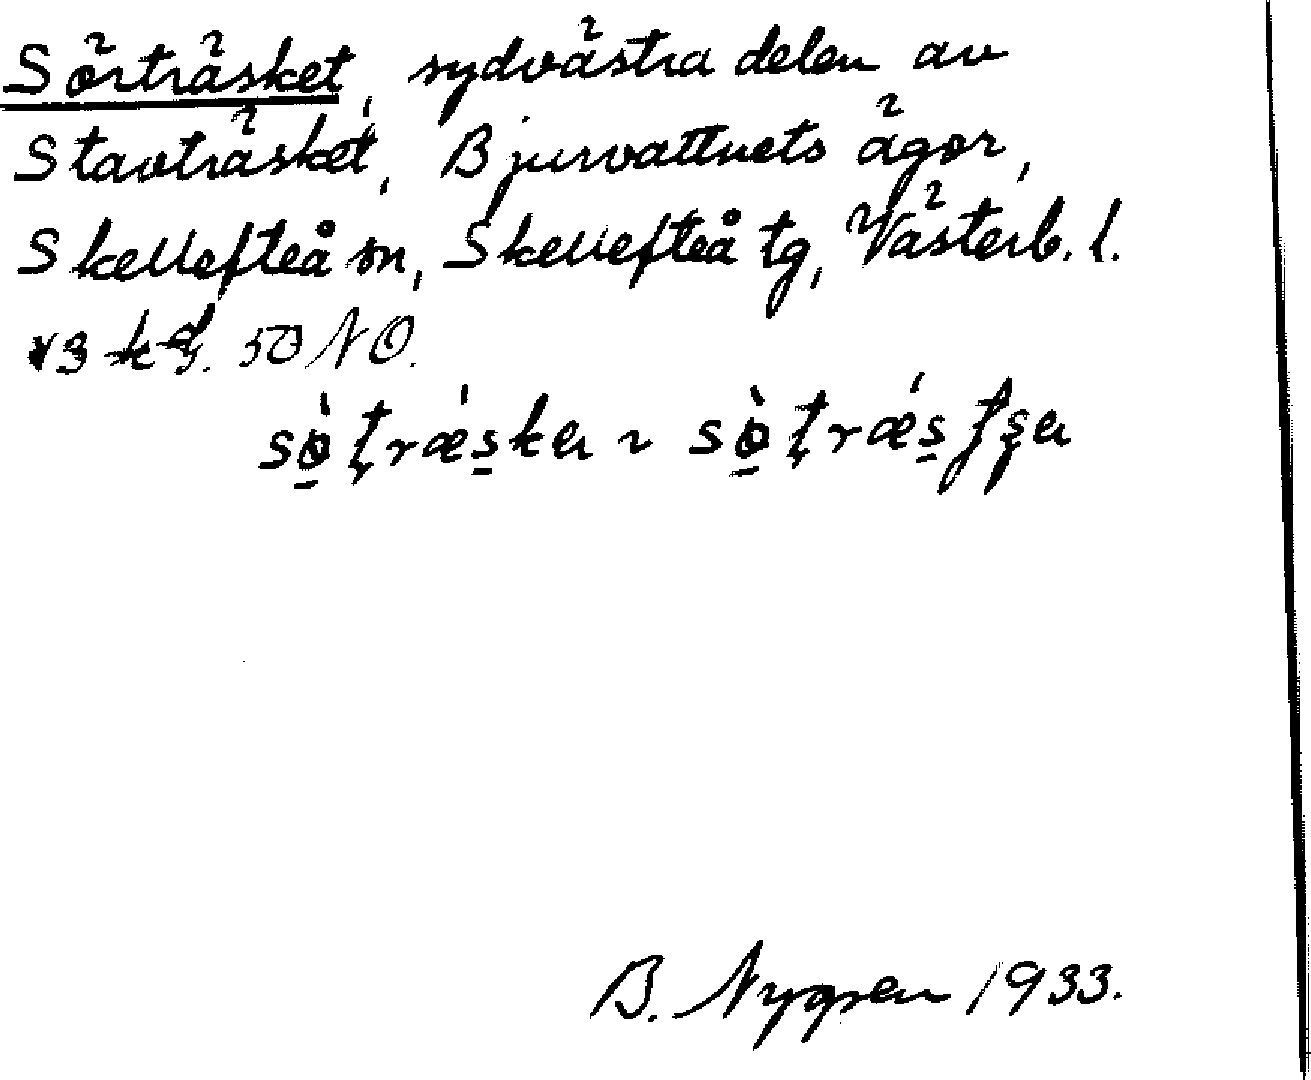 Sörträsket, sydvästra delen av
Stavträsket, Bjurvattnets ägor,
Skellefteå sn, Skellefteå tg, Västerb. l.
50 NO.
B. Nygren 1933.